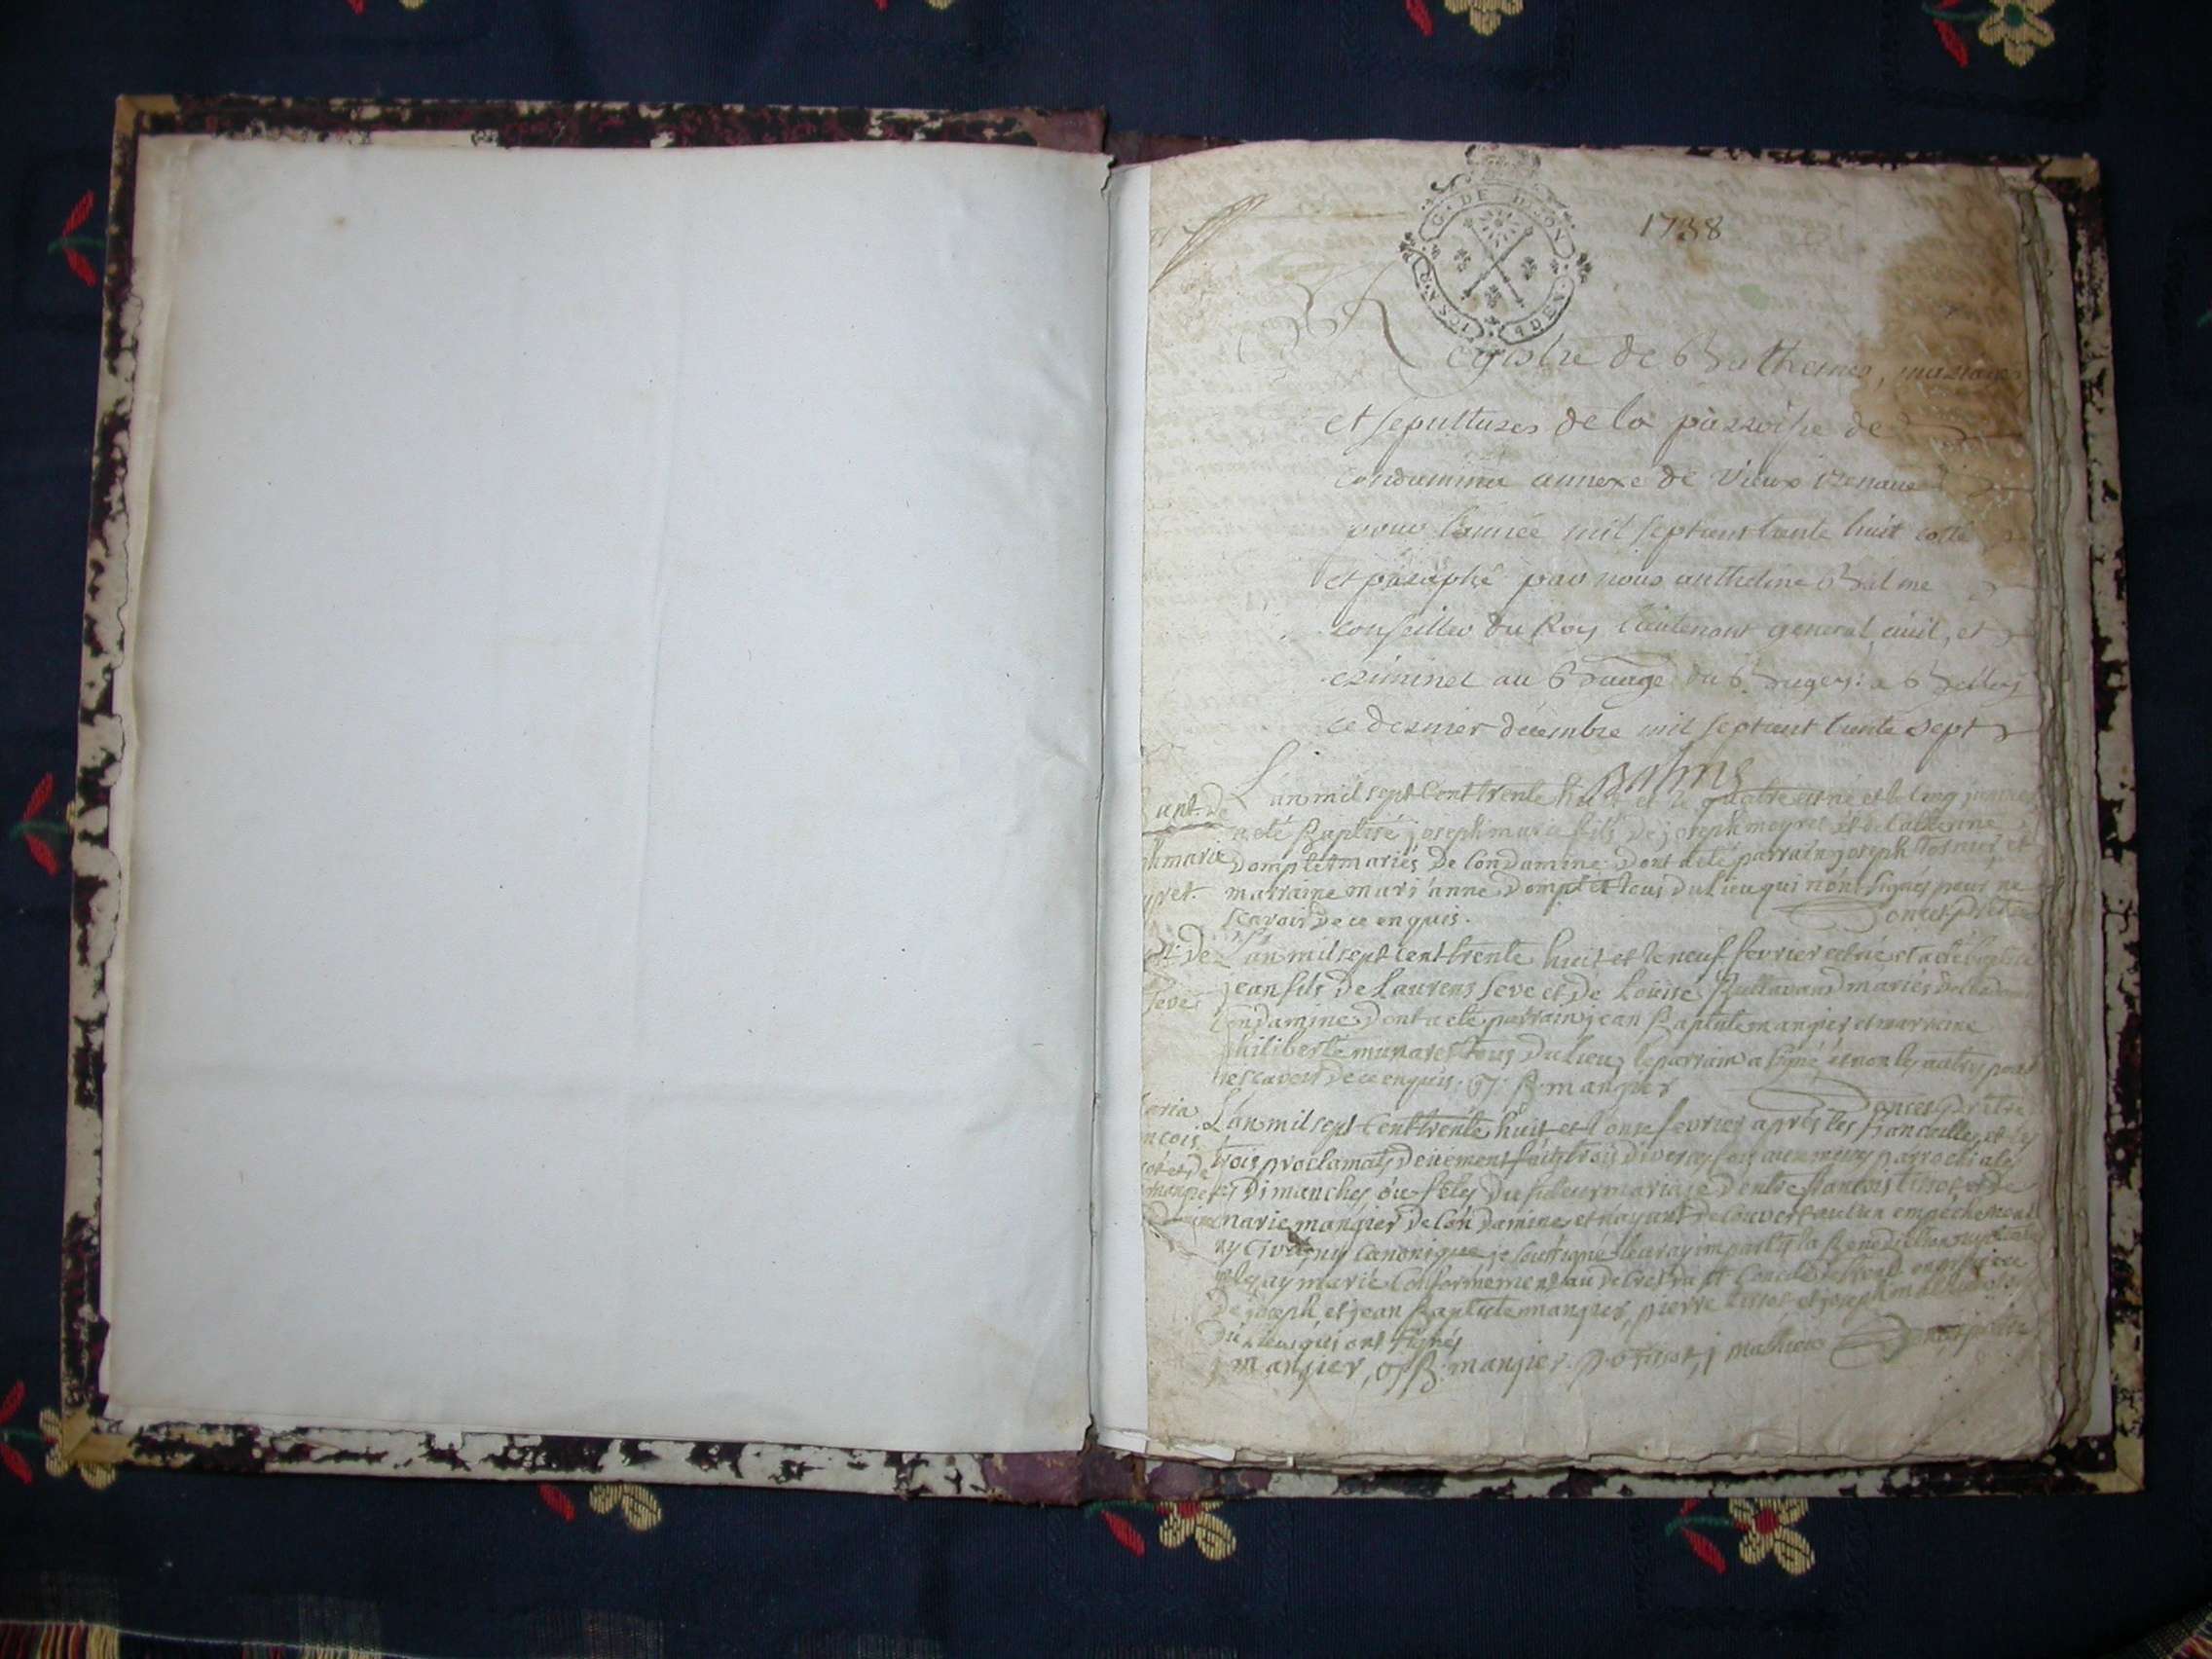 G. DE DIJON
1738
Registre de Bathemes, mariages
et sepultures de la parroisse de
Condamine annexe de Vieux
pour l'année mil septcent trente huit cotté
et paraphé par nous anthelme Balme
conseiller du Roy lieutenant general civil, et
criminel au du Bugey: a Belley
ce dernier décembre mil septcent trente sept
Balme
L'an mil sept cent trente huit et le quatre est né et le cinq janvier
a eté Baptisé joseph marie fils de joseph meyret et de
Domplet mariés De Condamine Dont a eté parrain joseph et
marraine mari'anne Domplet tous du Lieu qui n'ont signés pour ne
scavoir de ce enquis.
Doncet prêtre
L'an mil sept cent trente huit et le neuf fevrier est né et a eté baptisé
jean fils de Laurens seve et de Louise mariés
Condamine Dont a eté parrain jean Baptiste mangier et marraine
philiberte tous du Lieu, le parrain a signé et non les autres pour
ne scavoir de ce enquis. J. B. mangier
Doncet prêtre
L'an mil sept cent trente huit et l'onse fevrier aprés les fiancailles, et les
trois proclamats deüement faits trois divers
es Dimanches ou fetes Du futeur mariage D'entre francois tissot, et de
marie mangier de Condamine, et n'ayant decouvert aucun empechement
ny Civil ny Canonique je soussigné leur ay imparty la Benediction nuptiale
et les ay mariés Conformement au decret du st Concile de trente en presence
De joseph et jean Baptiste mangier, pierre tissot et joseph mathieu
du Lieu qui ont signés
j mangier, J B. mangier. p tissot, j mathieu Doncet prêtre